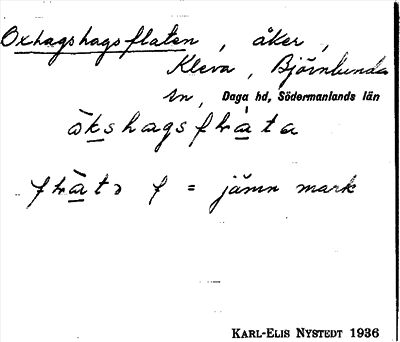 Oxhagshagsflaten, åker,
Kleva, Björnlunda
sn, Daga hd, Södermanlands län
åkshagsfrata
f = jämn mark
KARL-ELIS NYSTEDT 1936